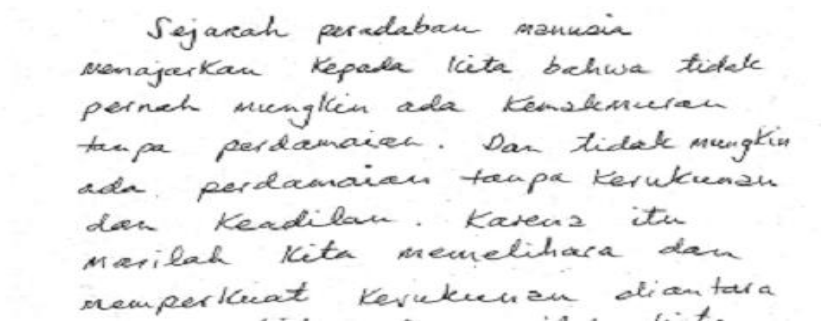 Sejarah peradaban manusia
menajarkan kepada kita bahwa tidak
pernah mungkin ada kemakmuran
tanpa perdamaian. Dan tidak mungkin
ada perdamaian tanpa kerukunan
dan keadilan. Karena itu
marilah kita memelihara dan
memperkuat kerukunan diantara
kita